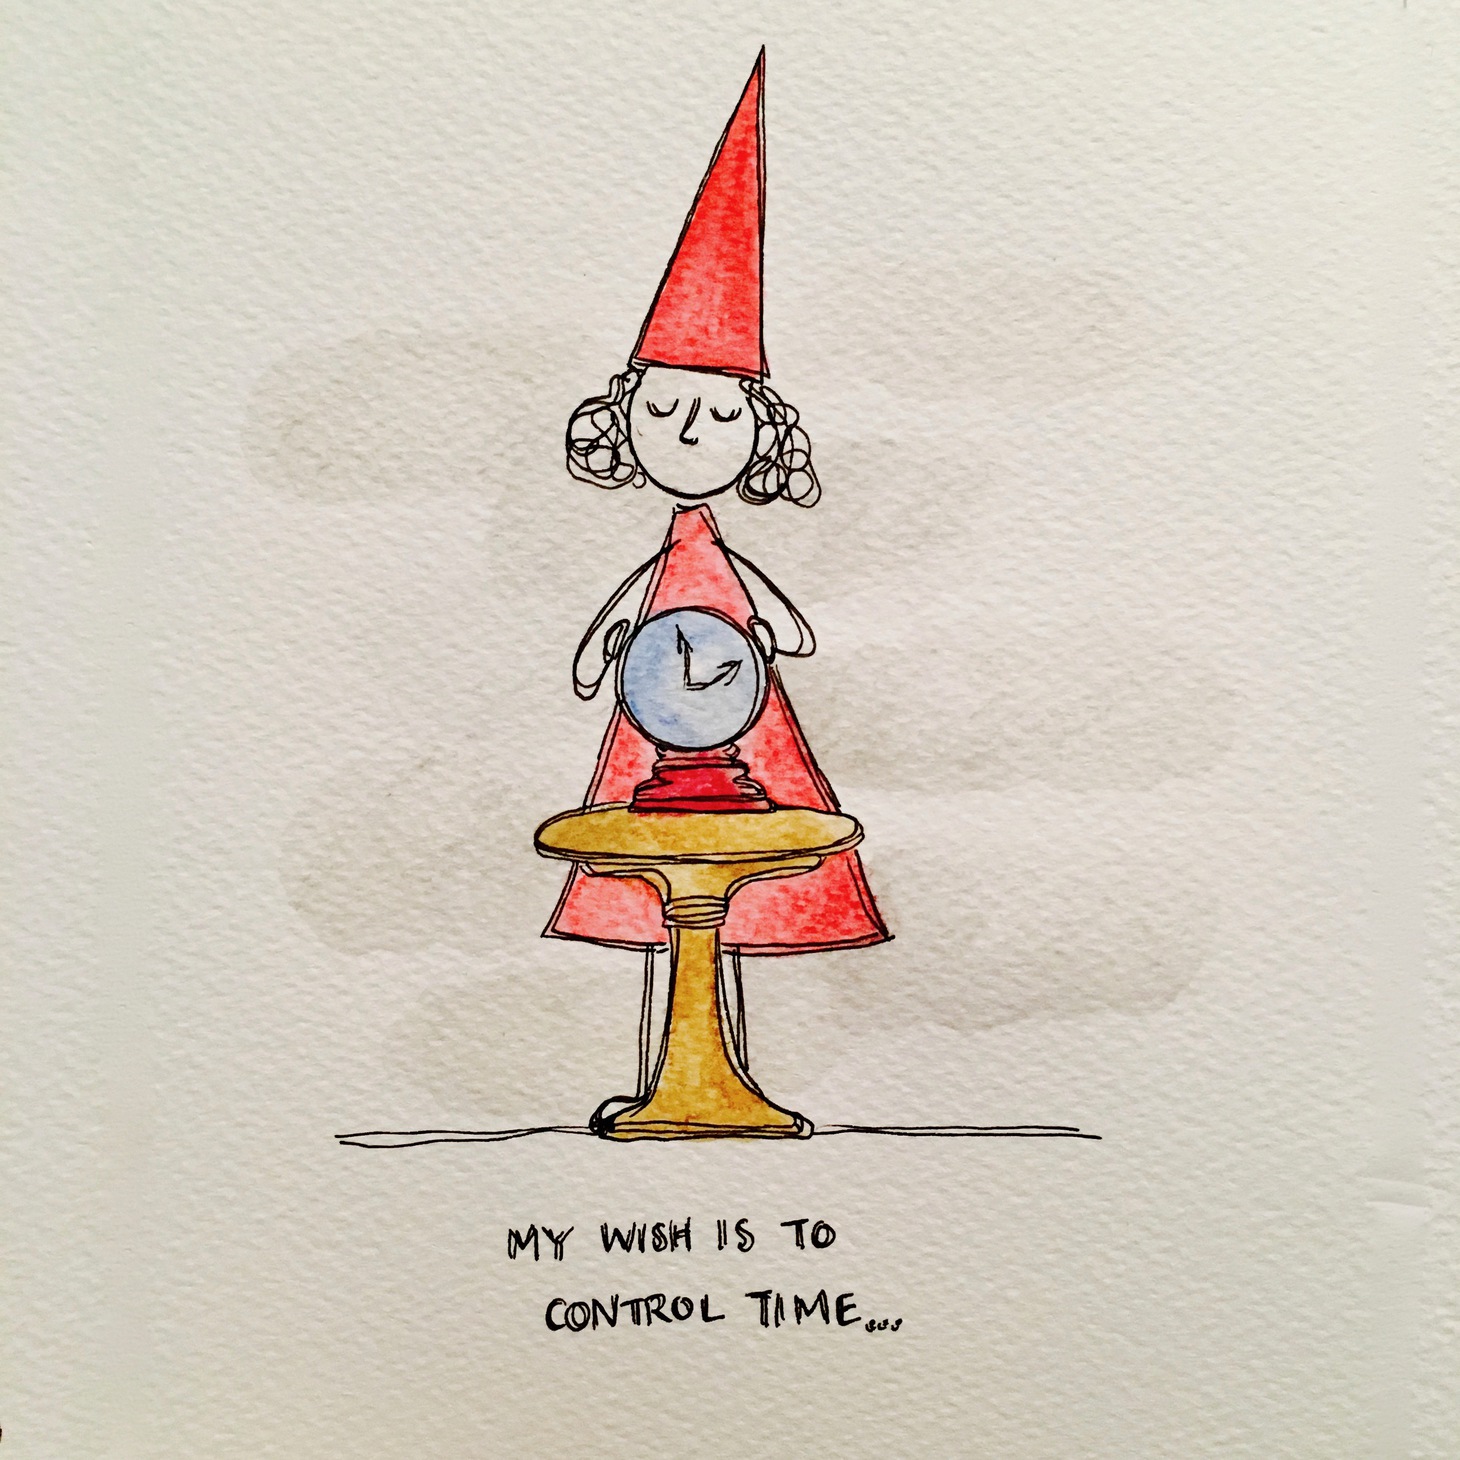 MY WISH IS TO
CONTROL TIME...